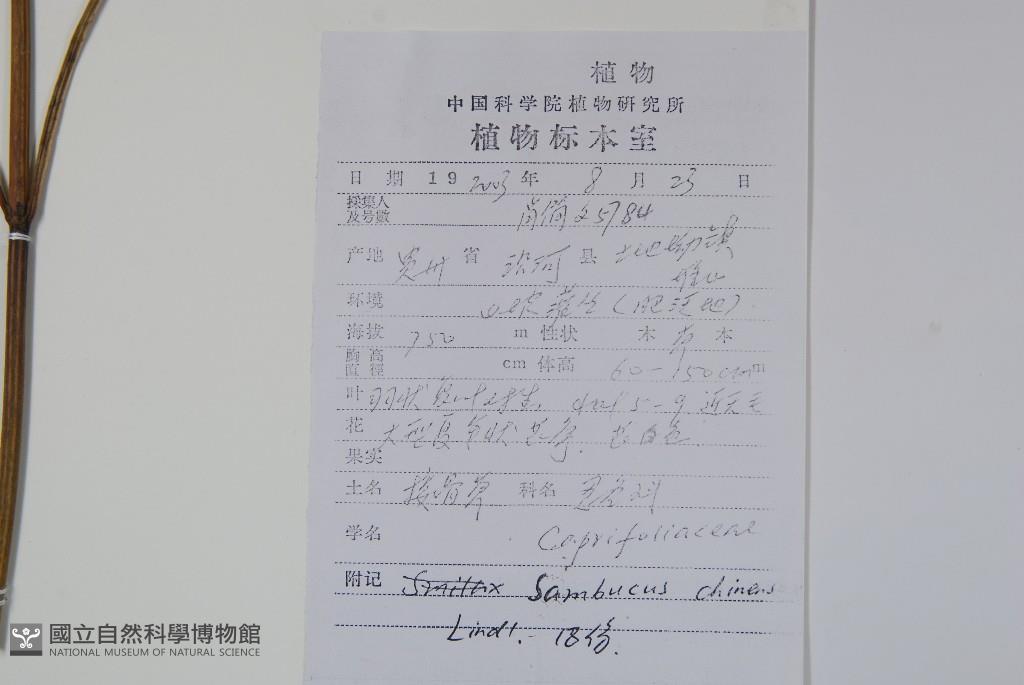 植物
中国科学院植物研究所
植物标本室
日 期 19 2003 年 8 月 23 日
採集人
及号數 5784
产地 贵州 省 沿河 县
环境 山坡灌丛(肥沃地)
海拔 750 m 性状 木 草 本
胸高
直徑 cm 体高 60-150cm m
叶 羽状复叶对生, 小叶5-9, 近无毛
花 大型复伞状花序. 花白色.
果实
土名 接骨草 科名 忍冬科
学名 Caprifoliaceae
附记 Smilax Sambucus chinens
Lindl. - 18份.
國立自然科學博物館
NATIONAL MUSEUM OF NATURAL SCIENCE